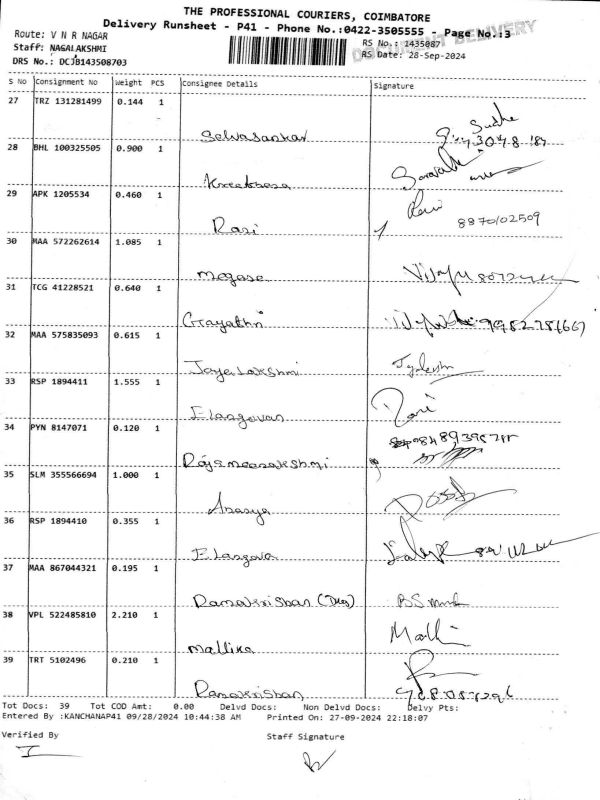 THE PROFESSIONAL COURIERS, COIMBATORE
Delivery Runsheet - P41 - Phone No.:0422-3505555 - Page No.:3
Route: V N R NAGAR
RS No.: 1435087
Staff: NAGALAKSHMI
RS Date: 28-Sep-2024
DRS No.: DCJB143508703
S No Consignment No Weight PCS Consignee Details Signature
27 TRZ 131281499 0.144 1
Selvasankar
Sudha
28 BHL 100325505 0.900 1
29 APK 1205534 0.460 1
Rasi
Ravi
8870102509
30 MAA 572262614 1.085 1
Megase
Vijay
31 TCG 41228521 0.640 1
Gayathri
32 MAA 575835093 0.615 1
Jayalakshmi
33 RSP 1894411 1.555 1
Elangovan
34 PYN 8147071 0.120 1
Rajameenakshmi
35 SLM 355566694 1.000 1
Anasya
36 RSP 1894410 0.355 1
Elangova
37 MAA 867044321 0.195 1
Ramakrishan
38 VPL 522485810 2.210 1
Mallika
Malli
39 TRT 5102496 0.210 1
Ramakrishan
Tot Docs: 39 Tot COD Amt: 0.00 Delvd Docs: Non Delvd Docs: Delvy Pts:
Entered By :KANCHANAP41 09/28/2024 10:44:38 AM Printed On: 27-09-2024 22:18:07
Verified By Staff Signature